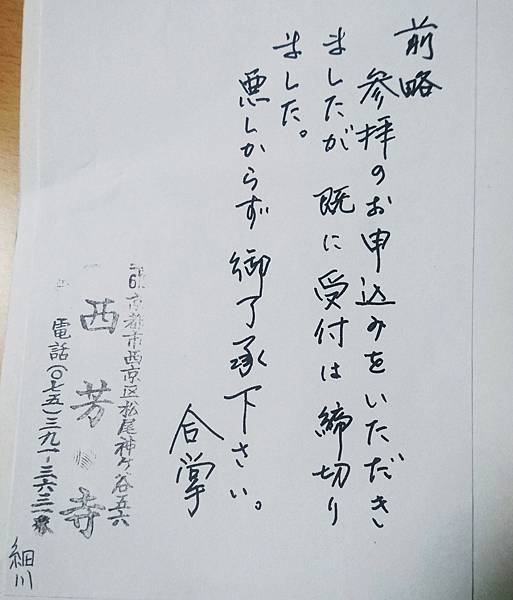 前略
参拝のお申込みをいただき
ましたが 既に受付は締切り
ました。
悪しからず御了承下さい。
合掌
京都市西京区松尾神ヶ谷五六
西芳寺
電話(〇七五)三九一-三六三一番
細川